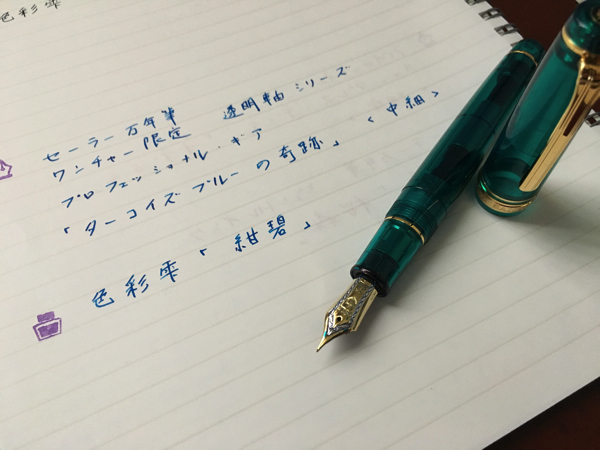 色彩雫
セーラー万年筆 透明軸シリーズ
ワンチャー限定
プロフェッショナル・ギア
「ターコイズブルーの奇跡」 <中細>
色彩雫「紺碧」